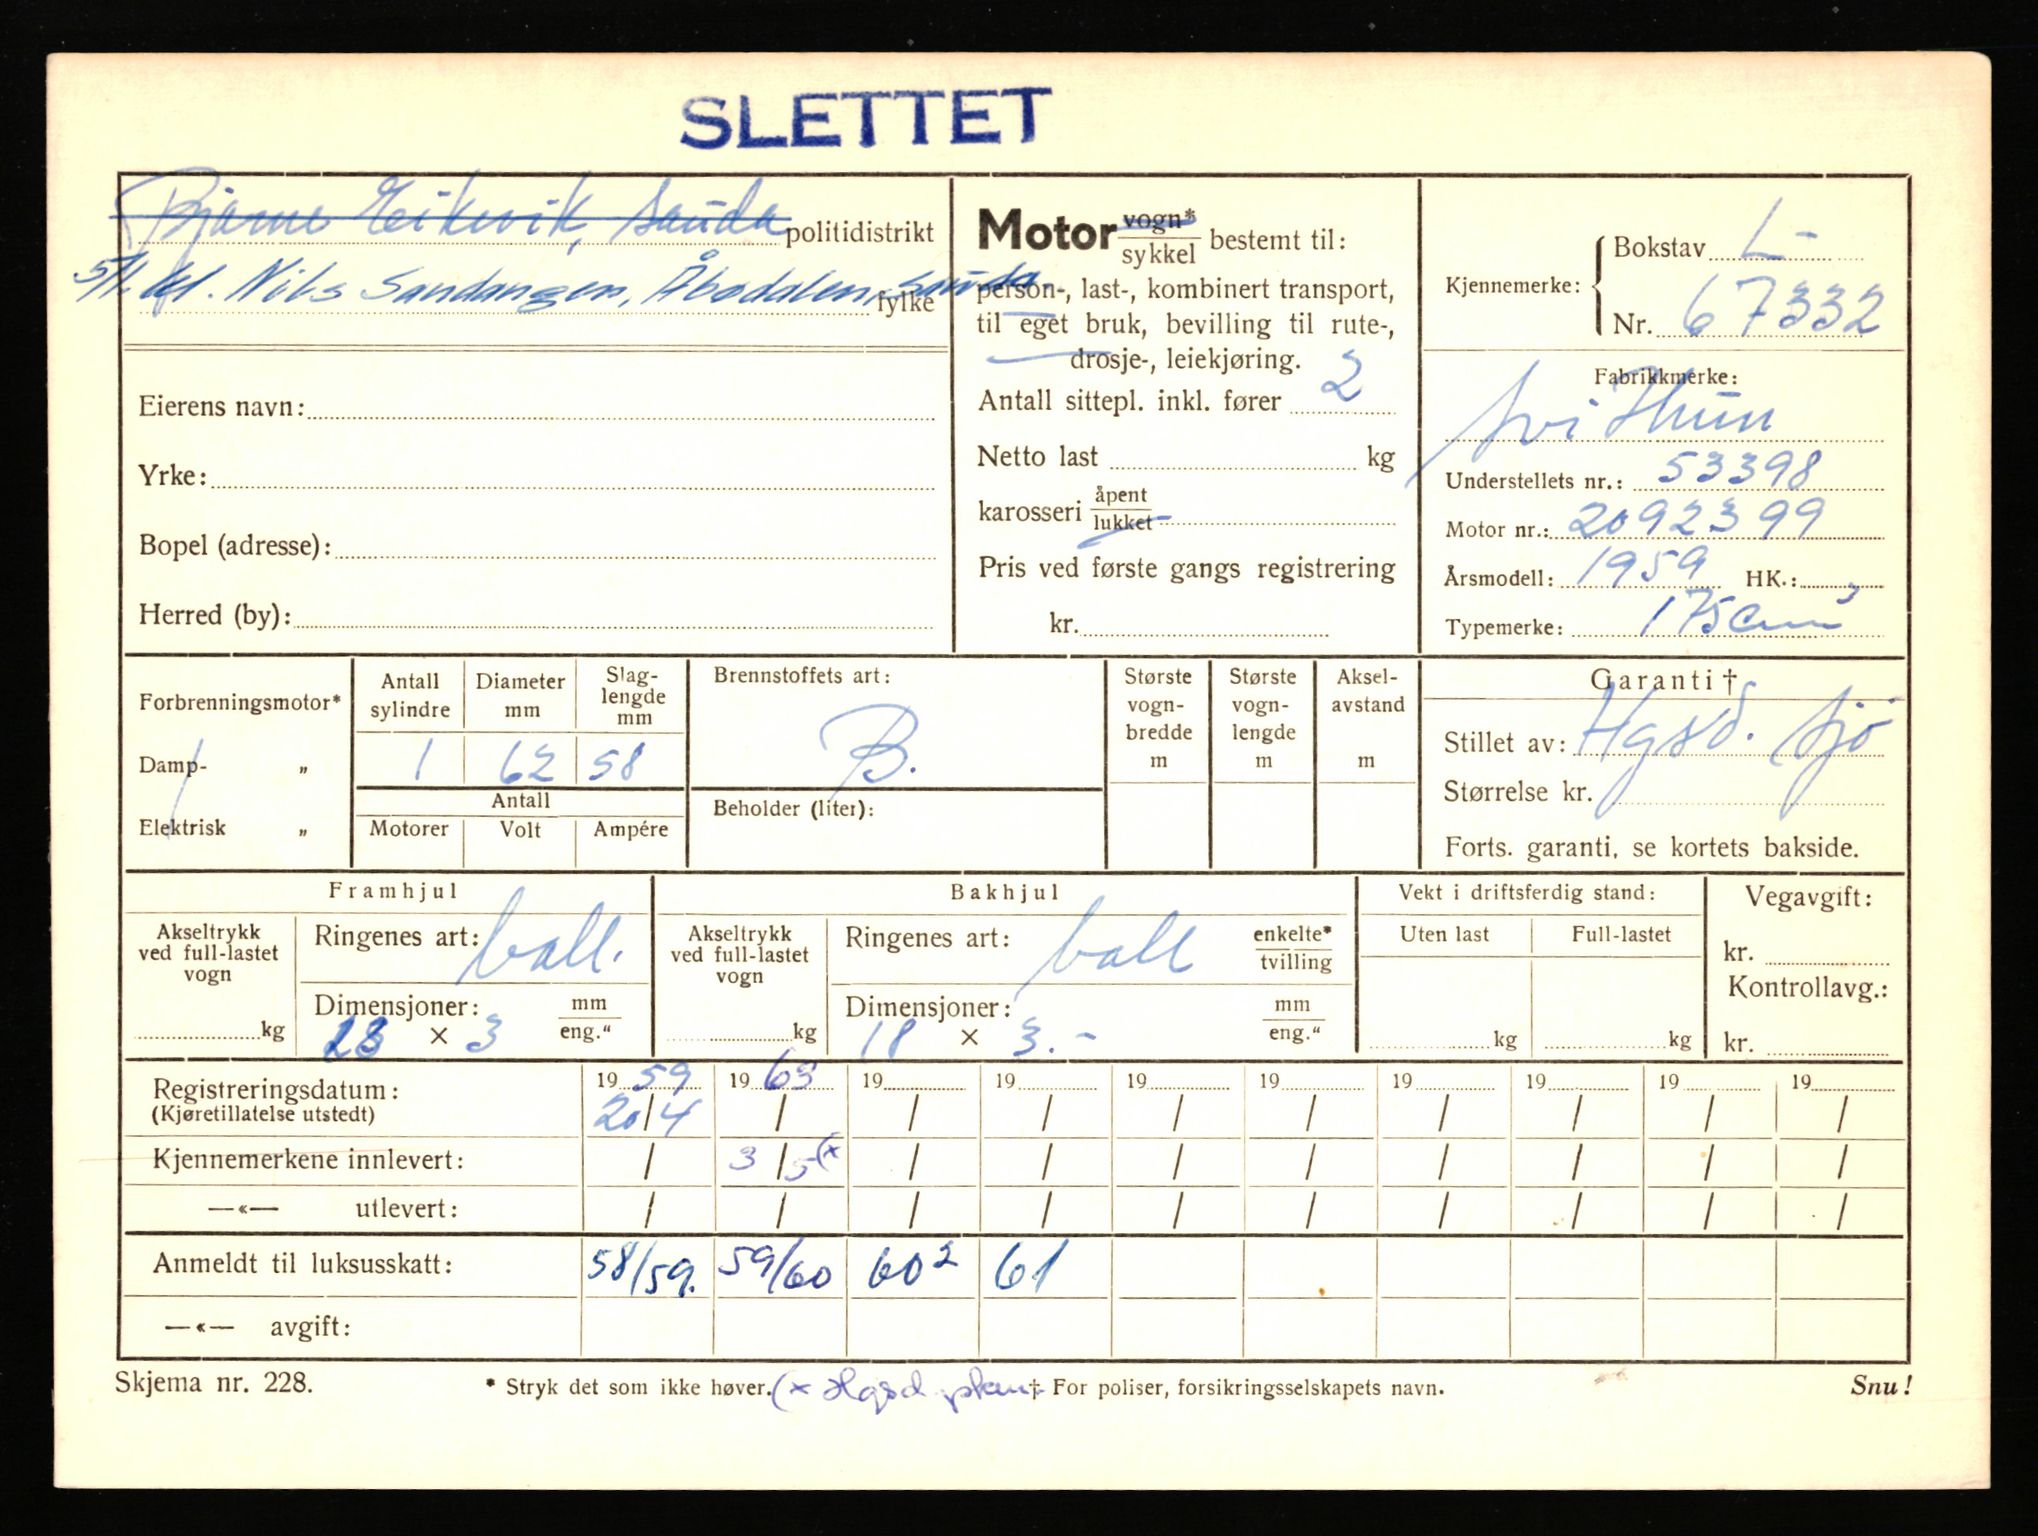 SLETTET
Bjarne Eikevik, Sauda politidistrikt
5/1. 61. Nils Sandangen, Åbødalen, Sauda fylke
Eierens navn:
Yrke:
Bopel (adresse):
Herred (by):
Motor vogn* / sykkel bestemt til:
person-, last-, kombinert transport,
til eget bruk, bevilling til rute-,
drosje-, leiekjøring.
Antall sittepl. inkl. fører 2
Netto last kg
karosseri åpent / lukket
Pris ved første gangs registrering
kr.
Kjennemerke: Bokstav L-
Nr. 67332
Fabrikkmerke:
Svithun
Understellets nr.: 53398
Motor nr.: 2092399
Årsmodell: 1959 HK.:
Typemerke: 175 cm³
Forbrenningsmotor*
Damp- „
Elektrisk „
Antall sylindre Diameter mm Slag-lengde mm
1 62 58
Antall
Motorer Volt Ampére
Brennstoffets art:
B.
Beholder (liter):
Største vogn-bredde m
Største vogn-lengde m
Aksel-avstand m
Garanti †
Stillet av: Hgsd. Sjø
Størrelse kr.
Forts. garanti, se kortets bakside.
Framhjul
Akseltrykk ved full-lastet vogn
kg
Ringenes art: ball.
Dimensjoner: mm / eng."
18 × 3
Bakhjul
Akseltrykk ved full-lastet vogn
kg
Ringenes art: ball enkelte* / tvilling
Dimensjoner: mm / eng."
18 × 3.-
Vekt i driftsferdig stand:
Uten last Full-lastet
kg kg
Vegavgift:
kr.
Kontrollavg.:
kr.
Registreringsdatum: 1959 1963 19 19 19 19 19 19 19 19
(Kjøretillatelse utstedt) 20/4 / / / / / / / / /
Kjennemerkene innlevert: / 3/5 (x / / / / / / / /
—«— utlevert: / / / / / / / / / /
Anmeldt til luksusskatt: 58/59. 59/60 60² 61
—«— avgift:
Skjema nr. 228. * Stryk det som ikke høver. (x Hgsd † For poliser, forsikringsselskapets navn. Snu!